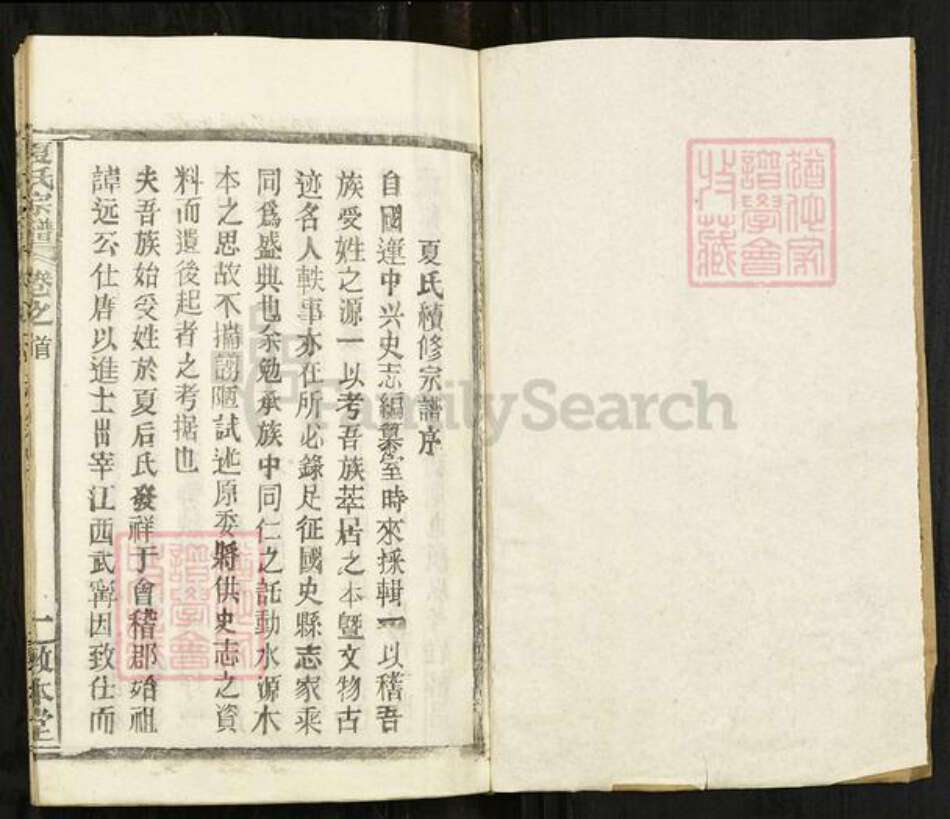 夏氏續修宗譜序
自國運中兴史志編纂室時來採輯一以稽吾
族受姓之源一以考吾族萃居之本暨文物古
迹名人軼事亦在所必錄足征國史縣志家乘
同爲盛典也余勉承族中同仁之託動水源木
本之思故不揣謭陋試述原委將供史志之資
料而遺後起者之考据也
夫吾族始受姓於夏后氏發祥于會稽郡始祖
諱远公仕唐以進士出宰江西武甯因致仕而
夏氏宗譜
卷之首
一
敦本堂
譜學會
收藏
FamilySearch